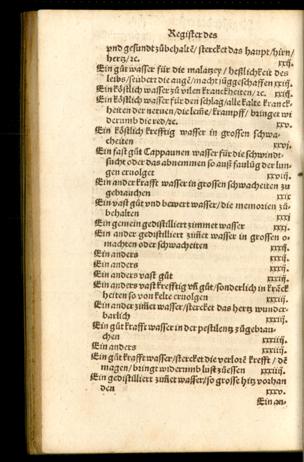 Register des
vnd gesundt zůbehaltē/ stercket das haupt/hirn/
hertz/ꝛc. xxij.
Ein gůt wasser für die malatzey/ heßlichkeit des
leibs/seubert die augē/macht jüggeschaffen xxiij
Ein köstlich wasser zů vilen kranckheiten/ꝛc. xxiiij.
Ein köstlich wasser für den schlag/alle kalte kranck-
heiten der neruen/die leüse/krampff/ bringet wi
derumb die red/ꝛc. xxv.
Ein köstlich krefftig wasser in grossen schwa-
cheiten xxvj.
Ein fast gůt Cappaunen wasser für die schwindt-
sucht oder das abnemmen so auß faulūg der lun-
gen eruolget xxvij.
Ein ander krafft wasser in grossen schwacheiten zů
gebrauchen xxix
Ein vast gůt vnd bewert wasser/die memorien zů-
behalten xxj
Ein gemein gedistilliert zimmet wasser xxxj.
Ein ander gedistilliert zim̄et wasser in grossen o-
machten oder schwacheiten xxxij.
Ein anders xxxij.
Ein anders xxxij.
Ein anders vast gůt xxxij.
Ein anders vast krefftig vñ gůt/sonderlich in krāck
heiten so von kelte eruolgen xxxiij.
Ein ander zim̄et wasser/stercket das hertz wunder-
barlich xxxiij.
Ein gůt krafft wasser in der pestilentz zůgebrau-
chen xxxiiij.
Ein anders xxxiiij.
Ein gůt krafft wasser/stercket die verlorē krefft/ dē
magen/ bringt widerumb lust zůessen xxxiiij.
Ein gedistilliert zim̄et wasser/so grosse hitz vorhan
den xxxv.
Ein an-